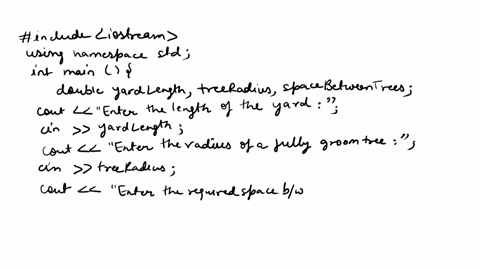 #include <iostream>
using namespace std;
int main () {
double yardLength, treeRadius, spaceBetweenTrees;
cout << "Enter the length of the yard : ";
cin >> yardLength ;
cout << "Enter the radius of a fully groom tree : ";
cin >> treeRadius ;
cout << "Enter the required space b/w